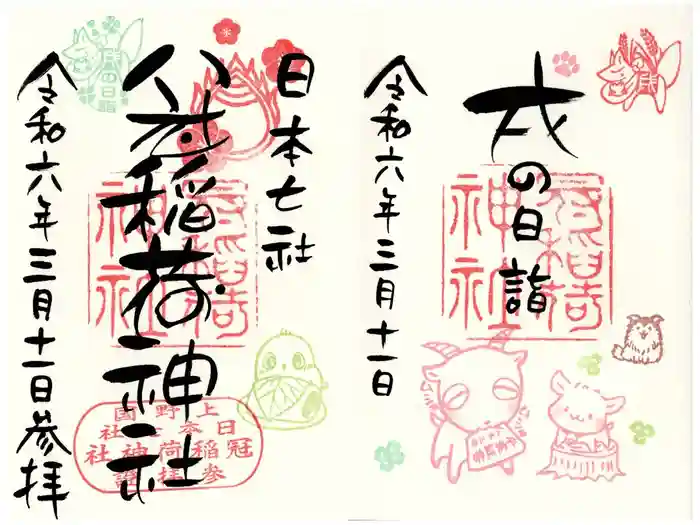 日本七社
冠稲荷神社
令和六年三月十一日参拝
戌の日詣
上野國
日本七社
冠稲荷神社
参拝證
神社
戌の日詣
令和六年三月十一日
戌
神社